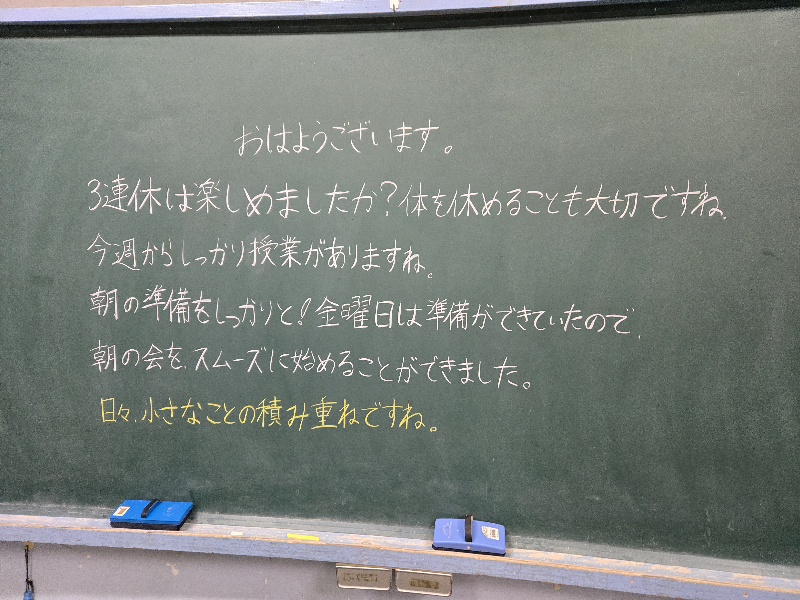 おはようございます。
3連休は楽しめましたか?体を休めることも大切ですね。
今週からしっかり授業がありますね。
朝の準備をしっかりと!金曜日は準備ができていたので、
朝の会を、スムーズに始めることができました。
日々、小さなことの積み重ねですね。